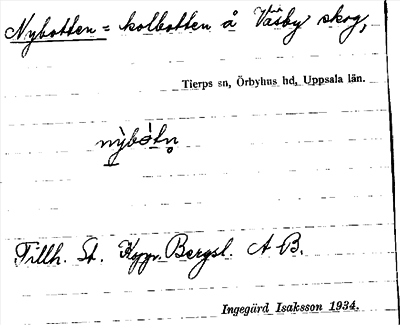 Nybotten = kolbotten å Väsby skog,
Tierps sn, Örbyhus hd, Uppsala län.
nỳbótn̥
Tillh. St. Kopp. Bergsl. A. B.
Ingegärd Isaksson 1934.